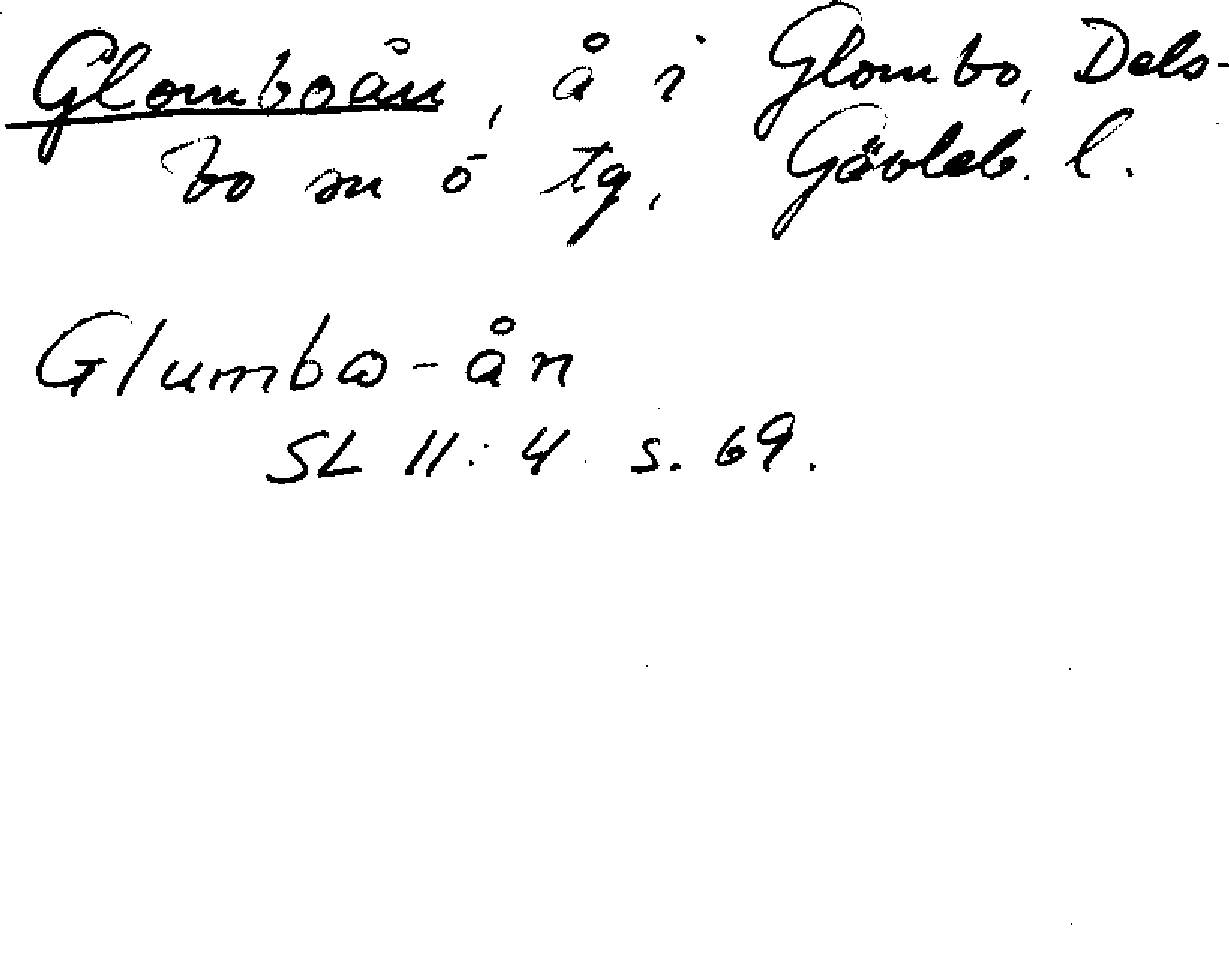 Glomboån, å i Glombo, Dels-
bo sn o tg, Gävleb. l.
Glumbo-ån
SL 11:4 s. 69.